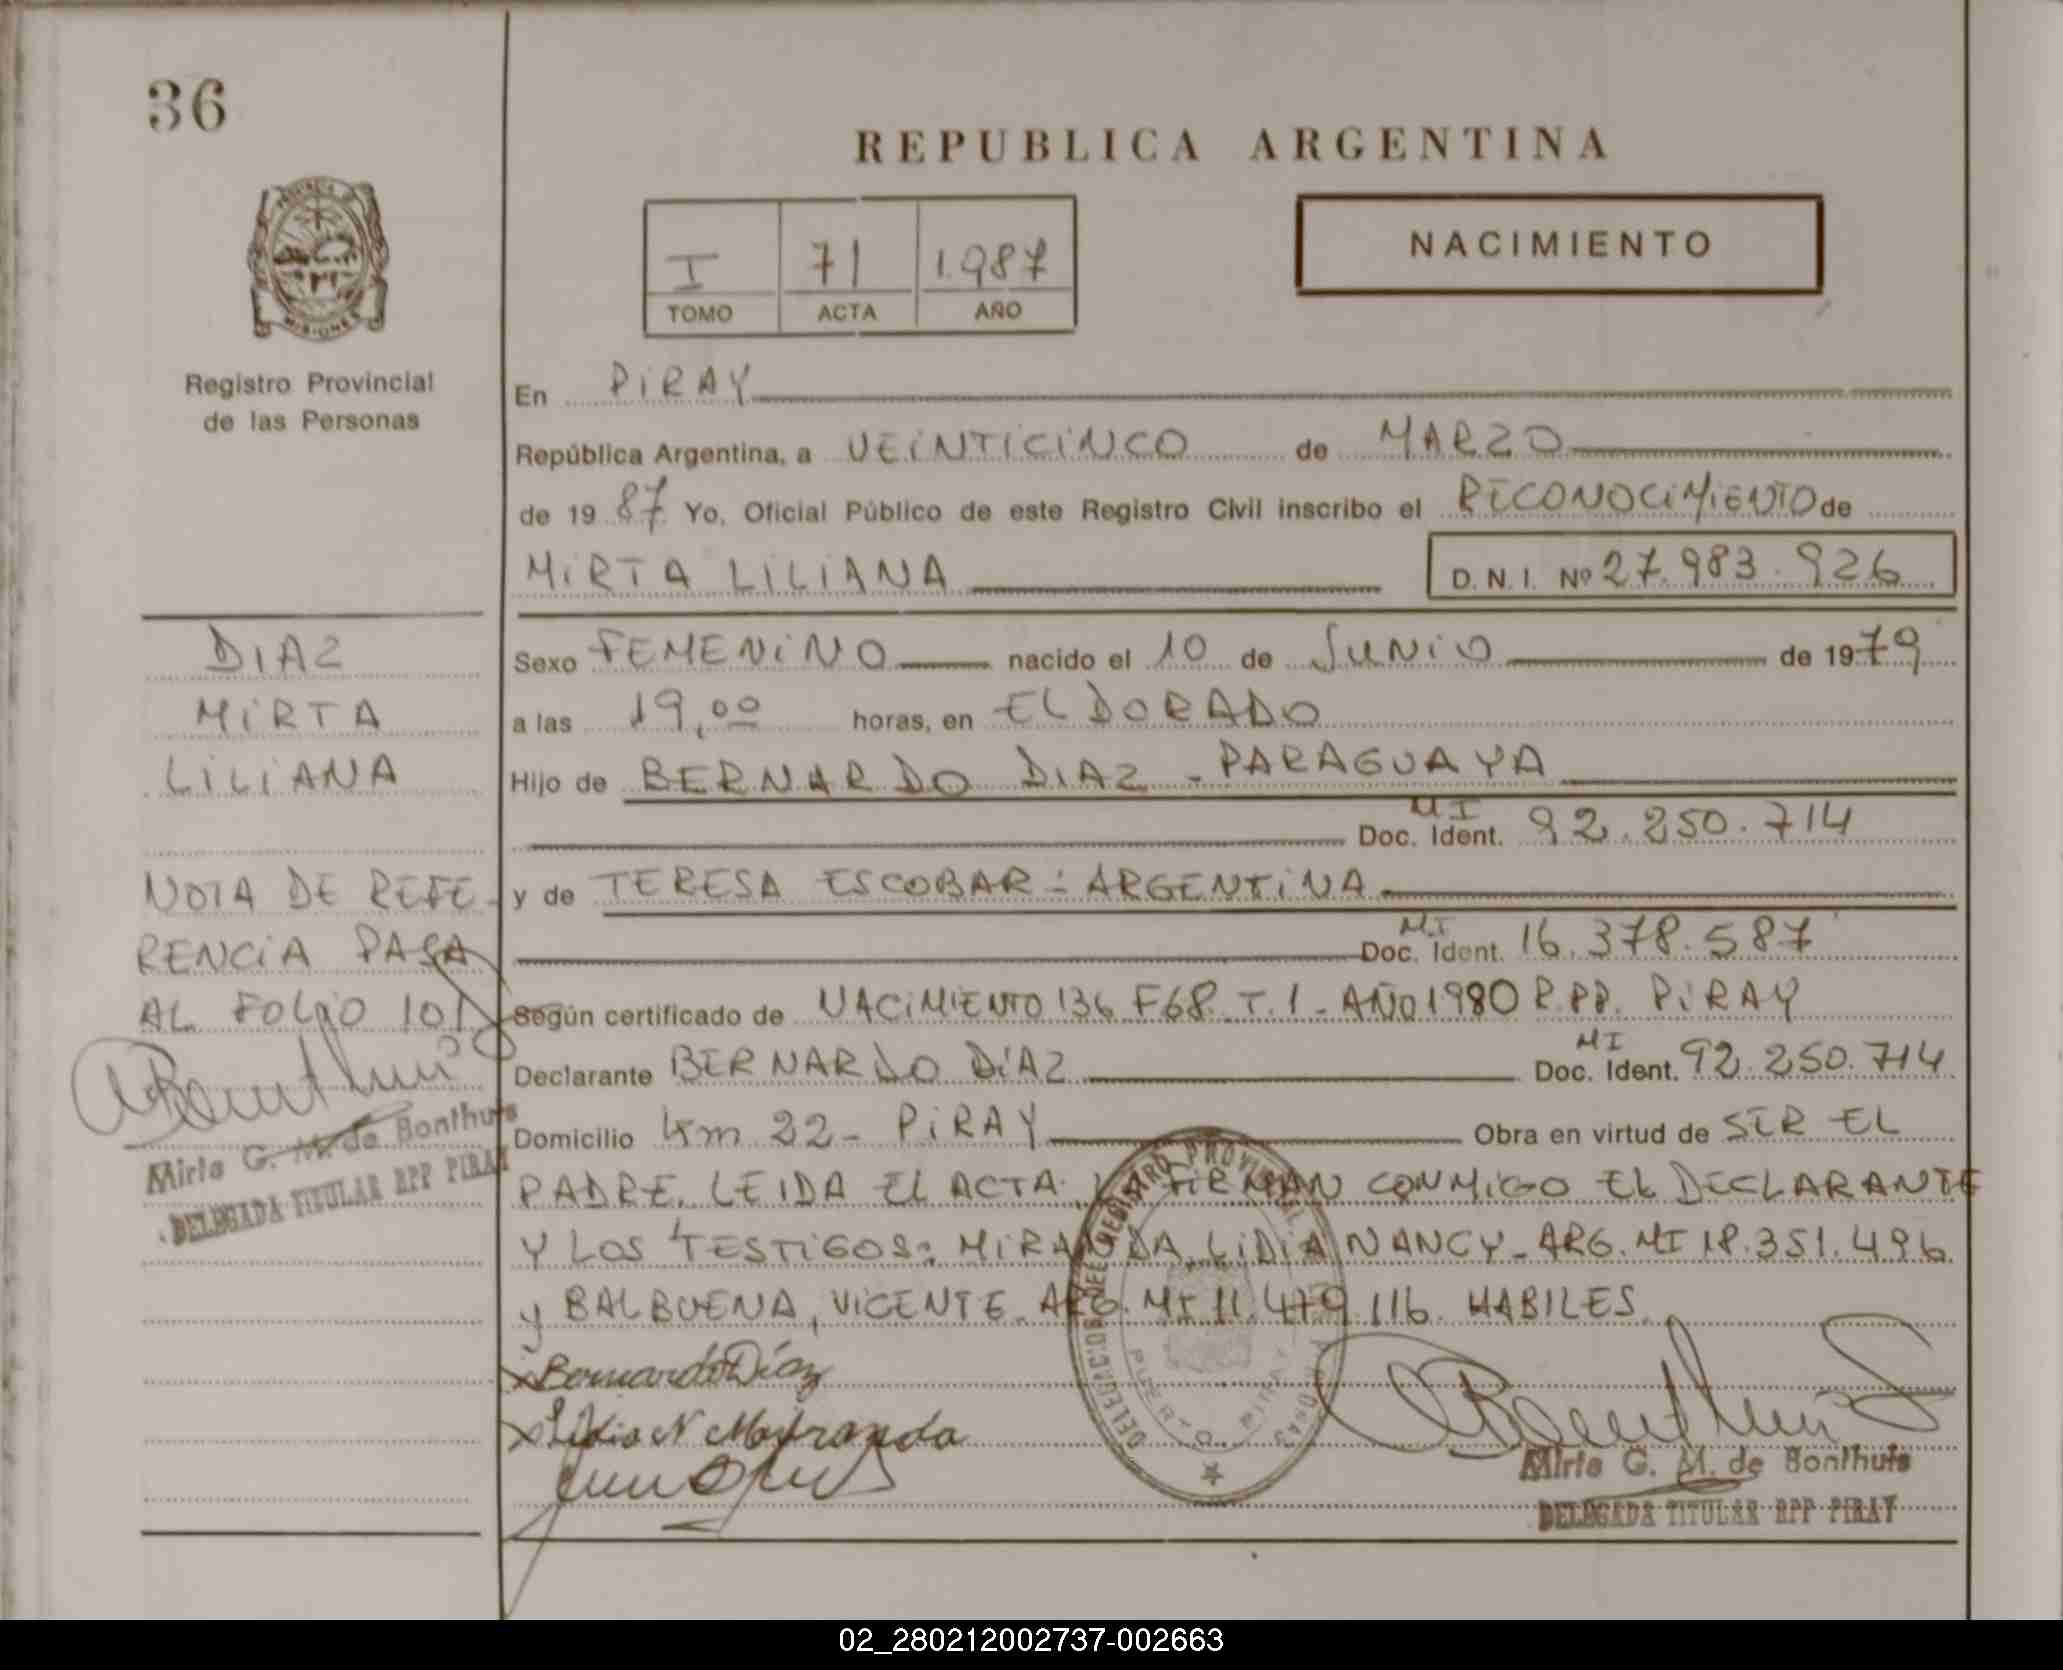 36
REPUBLICA ARGENTINA
PROVINCIA DE
MISIONES
I 71 1.987
TOMO ACTA AÑO
NACIMIENTO
Registro Provincial
de las Personas
En PIRAY
República Argentina, a VEINTICINCO de MARZO
de 19 87 Yo, Oficial Público de este Registro Civil inscribo el RECONOCIMIENTO de
MIRTA LILIANA D. N. I. Nº 27.983.926
DIAZ
MIRTA
LILIANA
NOTA DE REFE-
RENCIA PASA
AL FOLIO 101
Mirta G. M. de Bonthuis
DELEGADA TITULAR RPP PIRAY
Sexo FEMENINO nacido el 10 de JUNIO de 1979
a las 19,00 horas, en ELDORADO
Hijo de BERNARDO DIAZ - PARAGUAYA
MI
Doc. Ident. 92.250.714
y de TERESA ESCOBAR - ARGENTINA
MI
Doc. Ident. 16.378.587
Según certificado de NACIMIENTO 136 F68. T.1 - AÑO 1980 R.PP. PIRAY
MI
Declarante BERNARDO DIAZ Doc. Ident. 92.250.714
Domicilio Km 22 - PIRAY Obra en virtud de SER EL
PADRE. LEIDA EL ACTA, FIRMAN CONMIGO EL DECLARANTE
Y LOS TESTIGOS: MIRANDA, LIDIA NANCY - ARG. MI 18.351.496
y BALBUENA, VICENTE - ARG. MI 11.479.116. HABILES.
x Bernardo Díaz
x Lidia N Miranda
PUERTO PIRAY
Mirta G. M. de Bonthuis
DELEGADA TITULAR RPP PIRAY
02_280212002737-002663